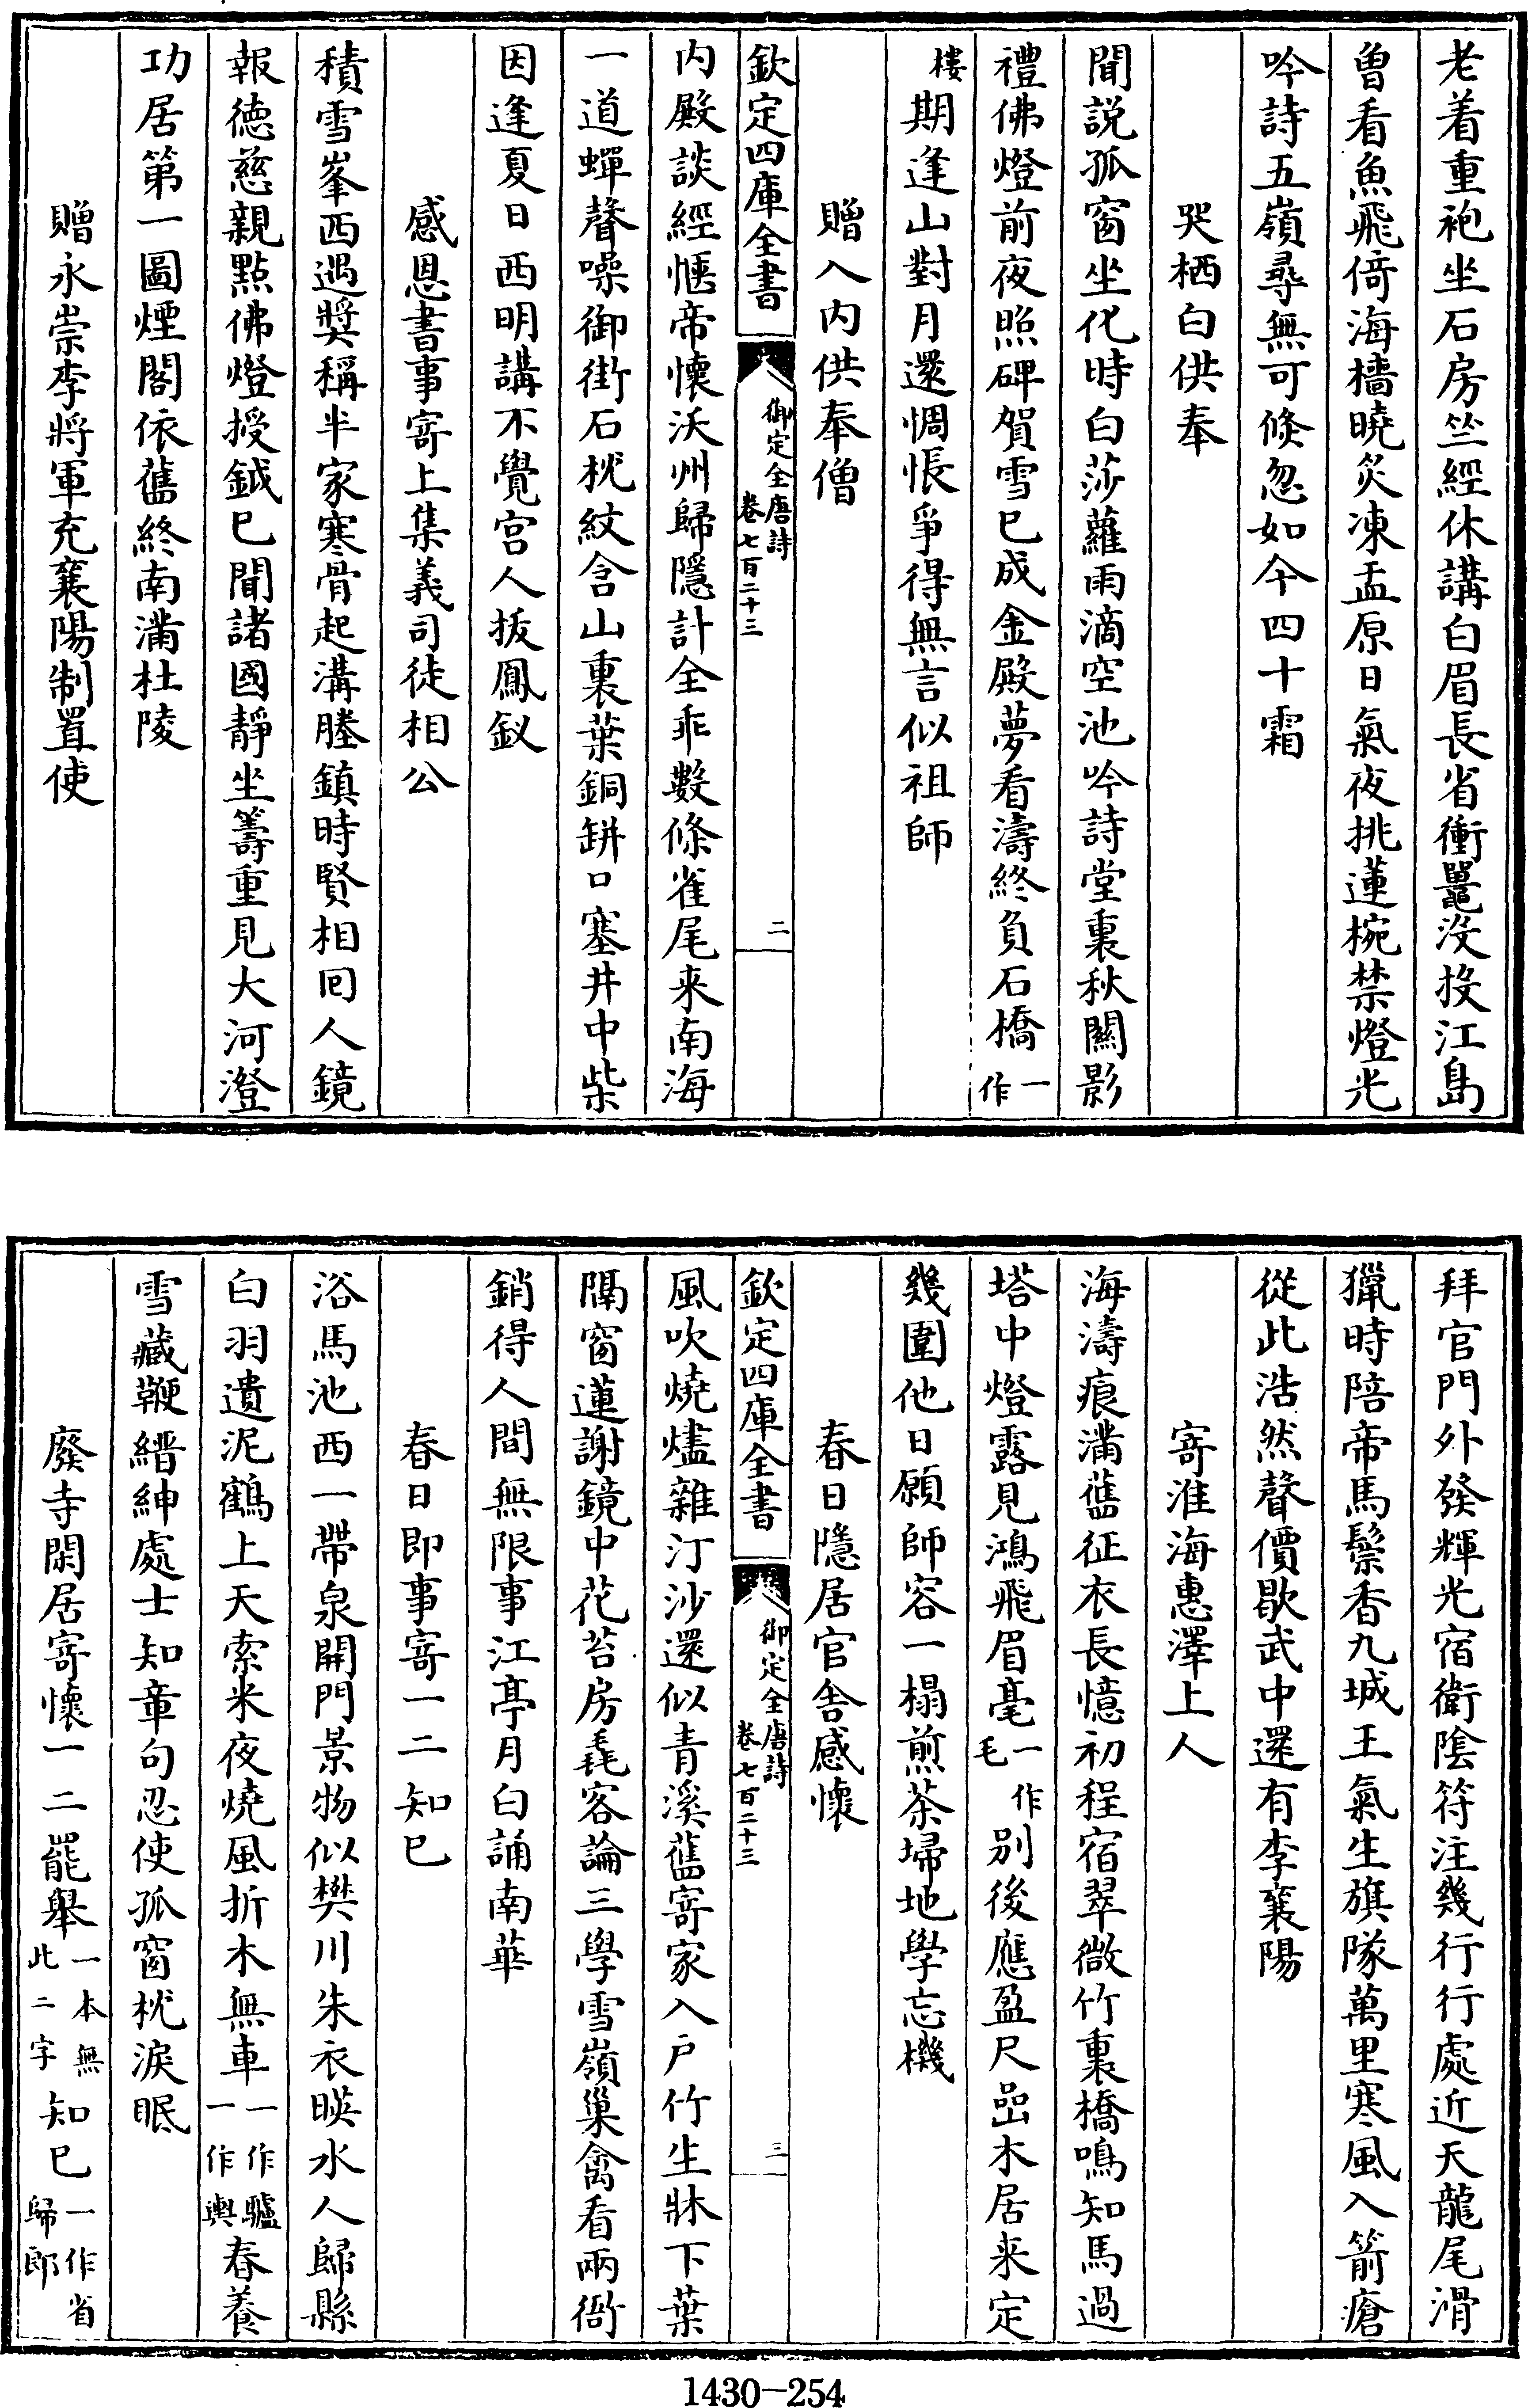 老着重袍坐石房竺經休講白眉長省衝鼉没投江島
曽看魚飛倚海檣曉炙凍盂原日氣夜挑蓮椀禁燈光
吟詩五嶺尋無可倐忽如今四十霜
哭栖白供奉
聞説孤窗坐化時白莎蘿雨滴空池吟詩堂裏秋闗影
禮佛燈前夜照碑賀雪已成金殿夢看濤終負石橋一作
樓期逢山對月還惆悵爭得無言似祖師
贈入内供奉僧
欽定四庫全書
御定全唐詩
卷七百二十三
二
内殿談經愜帝懷沃州歸隱計全乖數條雀尾来南海
一道蟬聲噪御街石枕紋含山裏葉銅缾口塞井中柴
因逢夏日西明講不覺宫人拔鳳釵
感恩書事寄上集義司徒相公
積雪峯西遇奨稱半家寒骨起溝塍鎮時賢相囘人鏡
報徳慈親點佛燈授鉞已聞諸國靜坐籌重見大河澄
功居第一圖煙閣依舊終南滿杜陵
贈永崇李將軍充襄陽制置使
拜官門外發輝光宿衛隂符注幾行行處近天龍尾滑
獵時陪帝馬鬃香九城王氣生旗隊萬里寒風入箭瘡
從此浩然聲價歇武中還有李襄陽
寄淮海惠澤上人
海濤痕滿舊征衣長憶初程宿翠微竹裏橋鳴知馬過
塔中燈露見鴻飛眉毫一作毛别後應盈尺嵒木居来定
幾圍他日願師容一榻煎茶埽地學忘機
春日隱居官舎感懷
欽定四庫全書
御定全唐詩
卷七百二十三
三
風吹燒燼雜汀沙還似青溪舊寄家入戸竹生牀下葉
隔窗蓮謝鏡中花苔房毳客論三學雪嶺巢禽看兩衙
銷得人間無限事江亭月白誦南華
春日即事寄一二知已
浴馬池西一帶泉開門景物似樊川朱衣暎水人歸縣
白羽遺泥鶴上天索米夜燒風折木無車一作驢一作輿春養
雪藏鞭縉紳處士知章句忍使孤窗枕淚眠
廢寺閑居寄懷一二罷舉一本無此二字知已一作省歸郎
1430-254